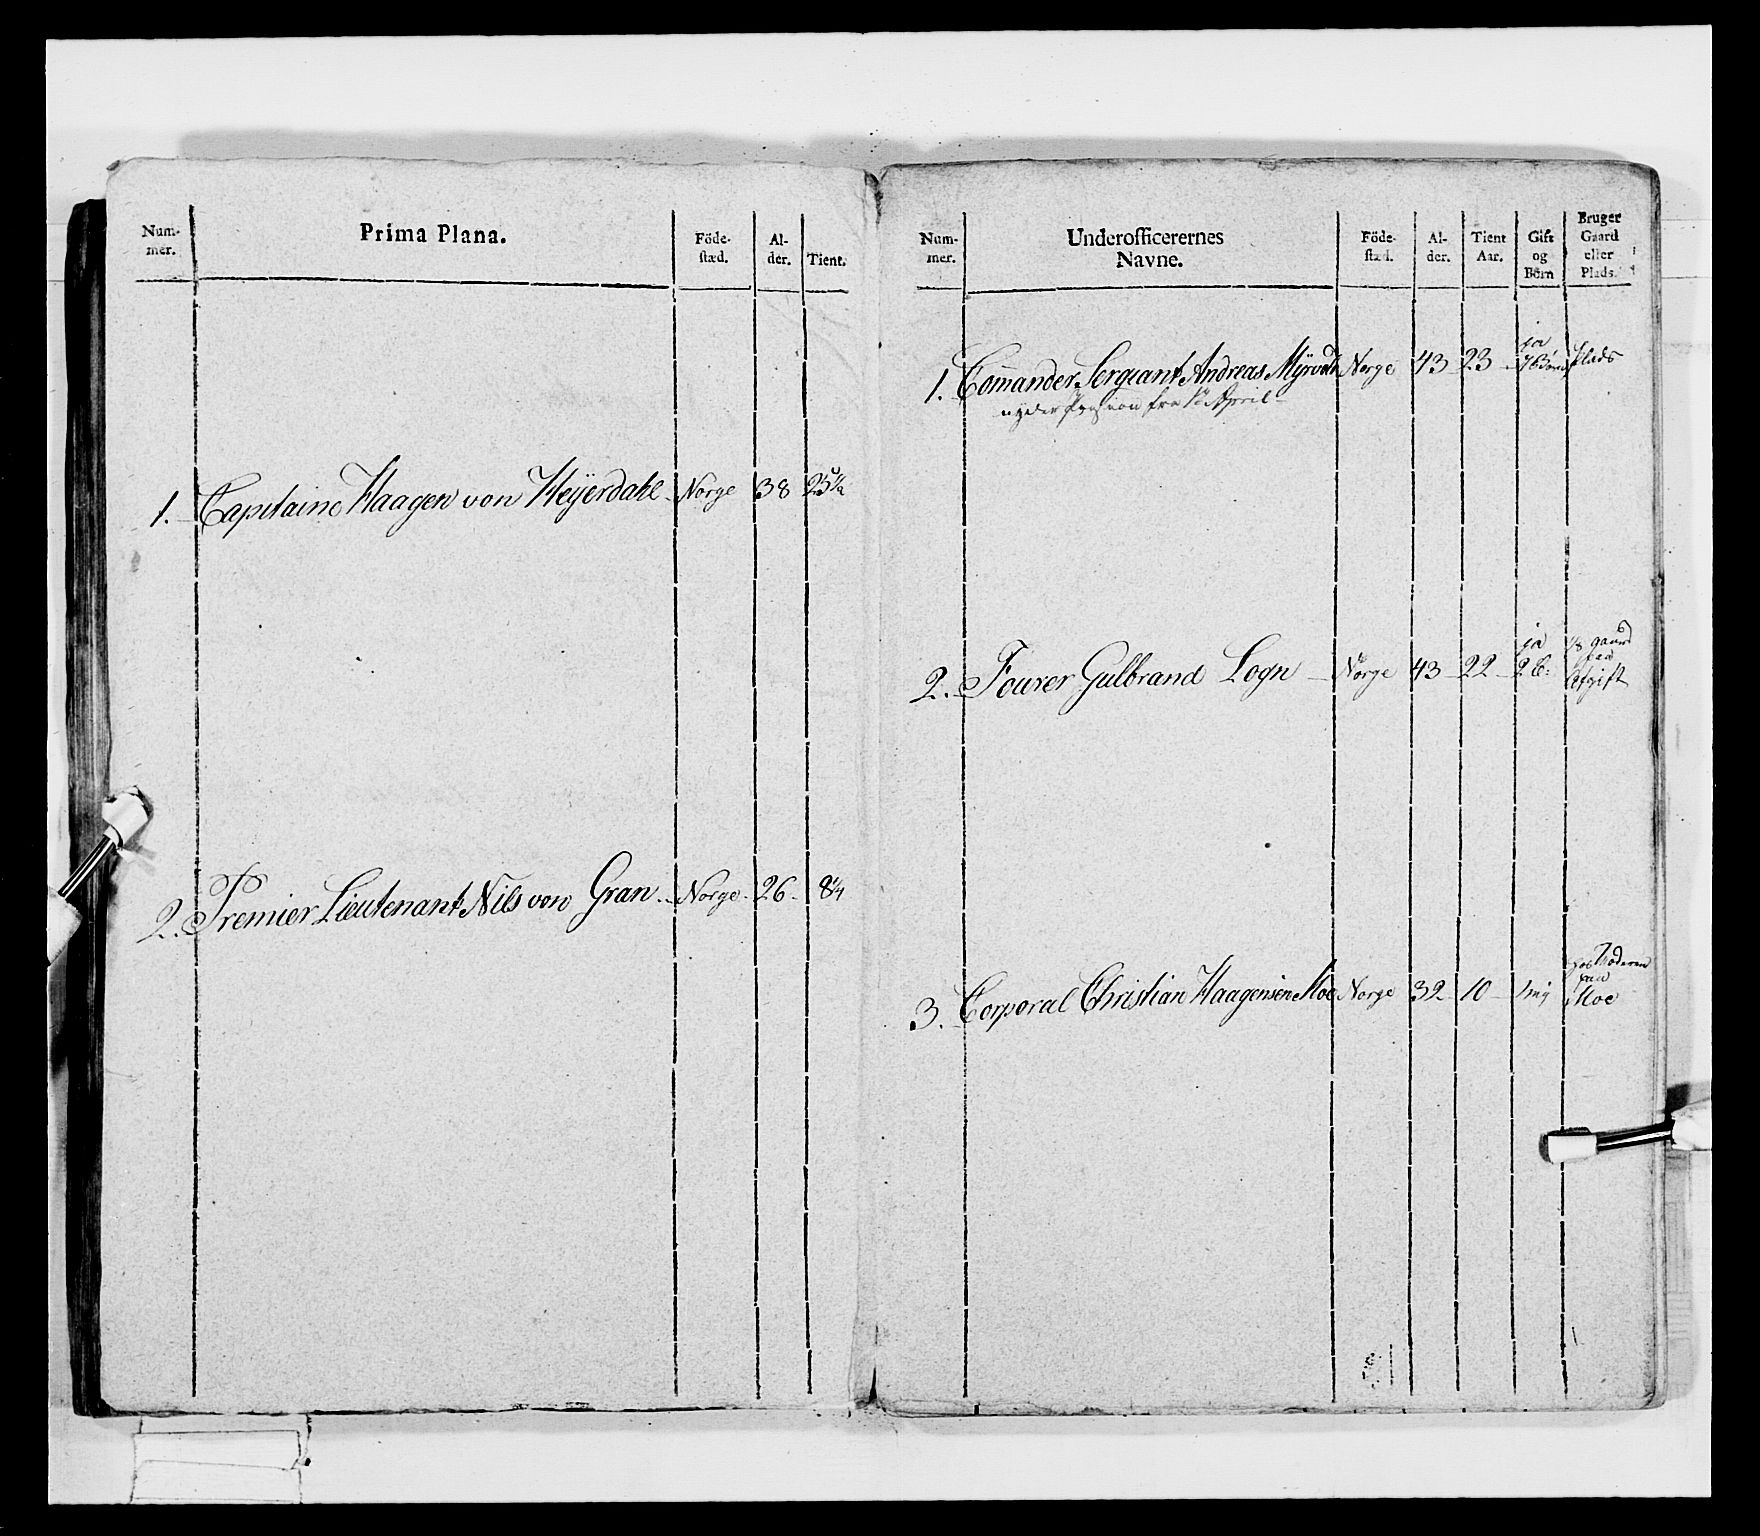 Num-
mer.
Prima Plana.
Föde-
stæd.
Al-
der.
Tient.
1. Capitaine Haagen von Heÿerdahl Norge 38 25½
2. Premier Lieutenant Nils von Gran Norge 26 8¼
Num-
mer.
Underofficerernes
Navne.
Föde-
stæd.
Al-
der.
Tient
Aar.
Gift
og
Börn
Bruger
Gaard
eller
Plads.
1. Comander Sergeant Andreas Mÿrvold Norge 43 23 ja Plads
nyder Pension fra April
2. Fourer Gulbrand Logn Norge 43 22 ja 2 B: gaard
paa
Afgift
3. Corporal Christian Haagensen Moe Norge 32 10 hos Moderen
paa
Moe